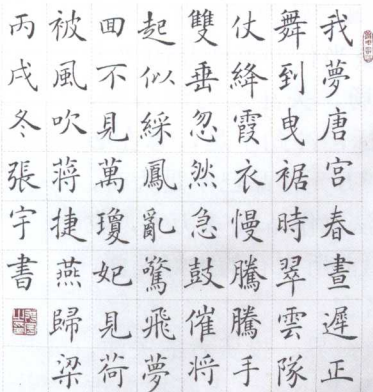 我夢唐宮春晝遲正
舞到曳裾時翠雲隊
仗絳霞衣慢騰騰手
雙垂忽然急鼓催将
起似綵鳳亂驚飛夢
囬不見萬瓊妃見荷
被風吹蔣捷燕歸梁
丙戌冬張宇書